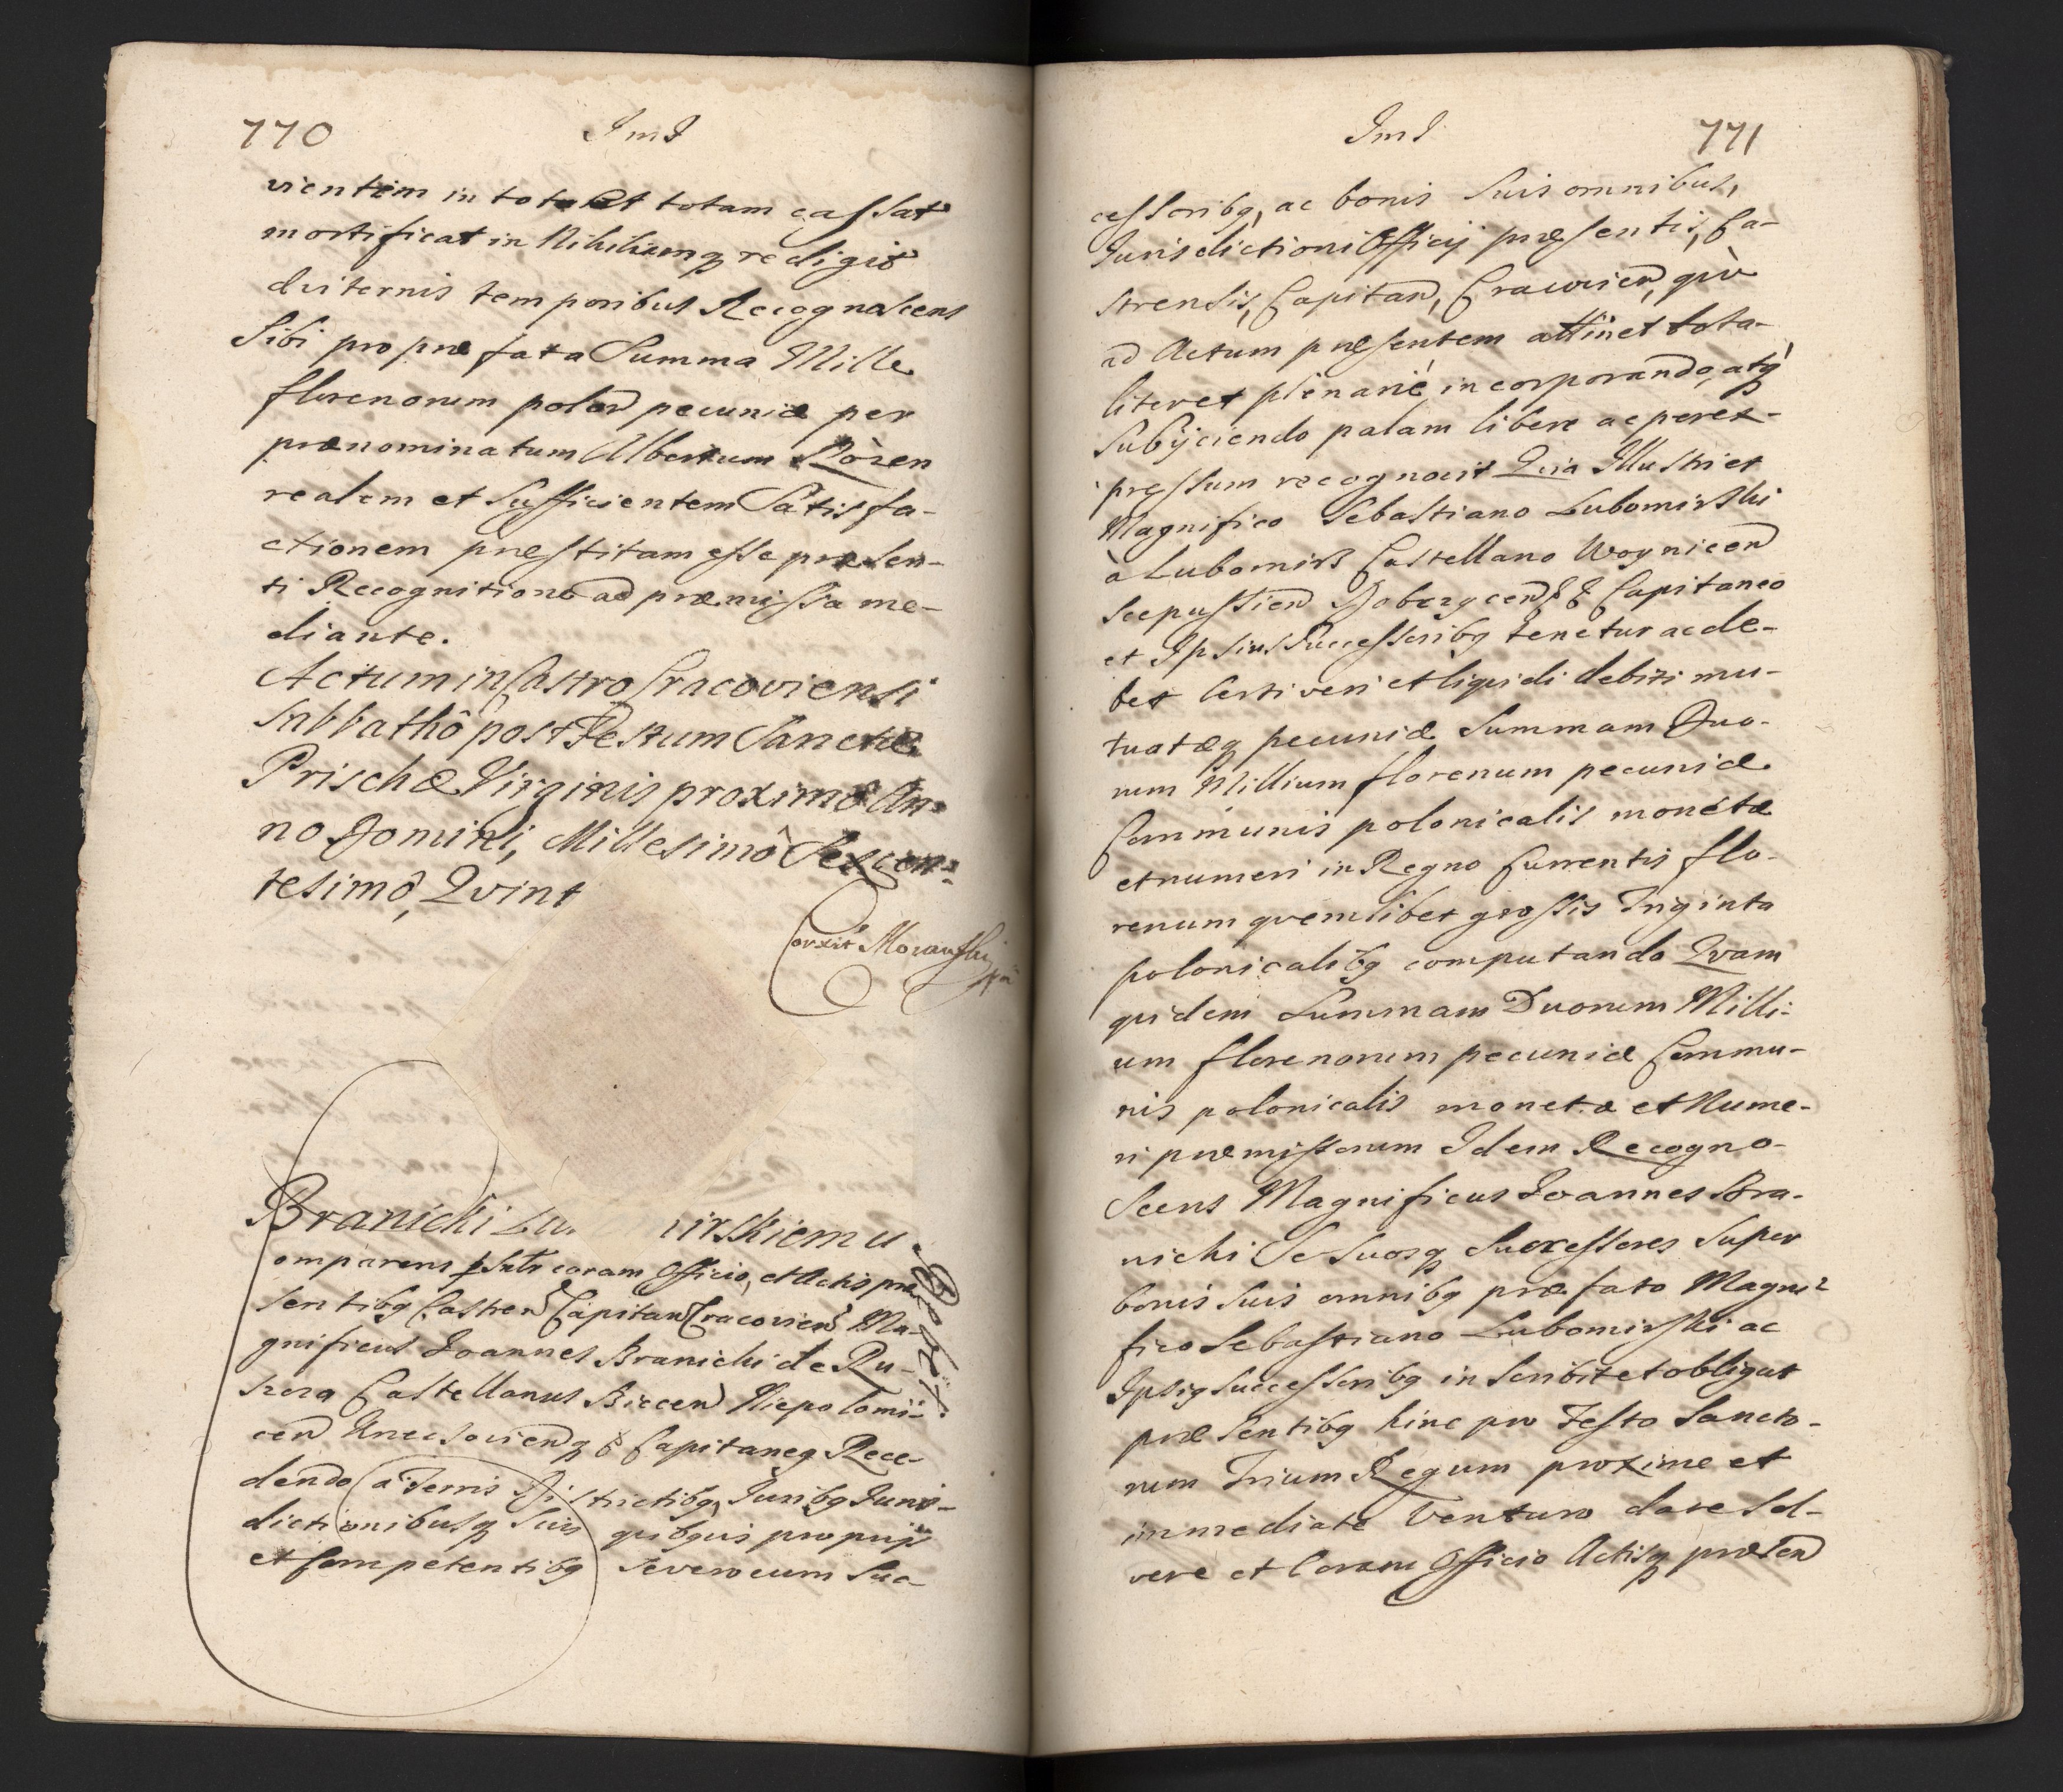 770 ImI
vientem in toto et totam cassat
mortificat in Nihilumq redigit
diviternis temporibus Recognoscens
Sibi pro præfata Summa Mille
florenorum polon pecuniæ per
prænominatum Albertum Rożen
realem et Sufficientem Satisfa-
ctionem præstitam esse præsen-
ti Recognitione ad præmissa me-
diante.
Actum in Castro Cracoviensi
Sabbathô post Festum Sanctæ
Prischæ Virginis proximô An-
no Domini, Millesimô Sexcen-
tesimô, Qvint
Corxit Morawski mp
Branicki Lu irskiemu.
omparens psntr coram Officio, et Actis præ
sentibq Castren Capitan Cracovien Ma-
gnificus Ioannes Branichi de Ru-
szcza Castellanus Biecen Niepolomi-
cen q & Capitaneq Rece-
dendo a Terris Districtibq, Iuribq Iuris-
dictionibusq Suis qvibqvis proprijs
et Competentibq Severo cum Suc-
ImI 771
cessoribq, ac bonis Suis omnibus,
Iurisdictioni Officij præsentis, Ca-
strensis, Capitan, Cracovien, qvò
ad Actum præsentem attinet tota-
liter et plenariè incorporando, atq
Subijciendo palam libere ac perex-
pressum recognovit Qvia Illustri et
Magnifico Sebastiano Lubomirski
à Lubomirz Castellano Woynicen
Scepussien Dobczycen & & Capitaneo
et Ipsius Successoribq tenetur ac de-
bet Certi veri et liqvidi debiti mu-
tuatæq pecuniæ Summam Duo-
rum Millium florenum pecuniæ
Communis polonicalis monetæ
et numeri in Regno Currentis flo-
renum qvemlibet grossis Triginta
polonicalibq computando Qvam
qvidem Summam Duorum Milli-
um florenorum pecuniæ Commu-
nis polonicalis monetæ et Nume-
ri præmissorum Idem Recogno-
Scens Magnificus Ioannes Bra-
nichi Se Suosq Successores Super
bonis Suis omnibq præfato Magni-
fico Sebastiano Lubomirski ac
Ipsiq Successoribq inscribit et obligat
præsentibq hinc pro Festo Sancto-
rum Trium Regum proxime et
immediate Venturo dare Sol-
vere et Coram Officio Actisq præsen